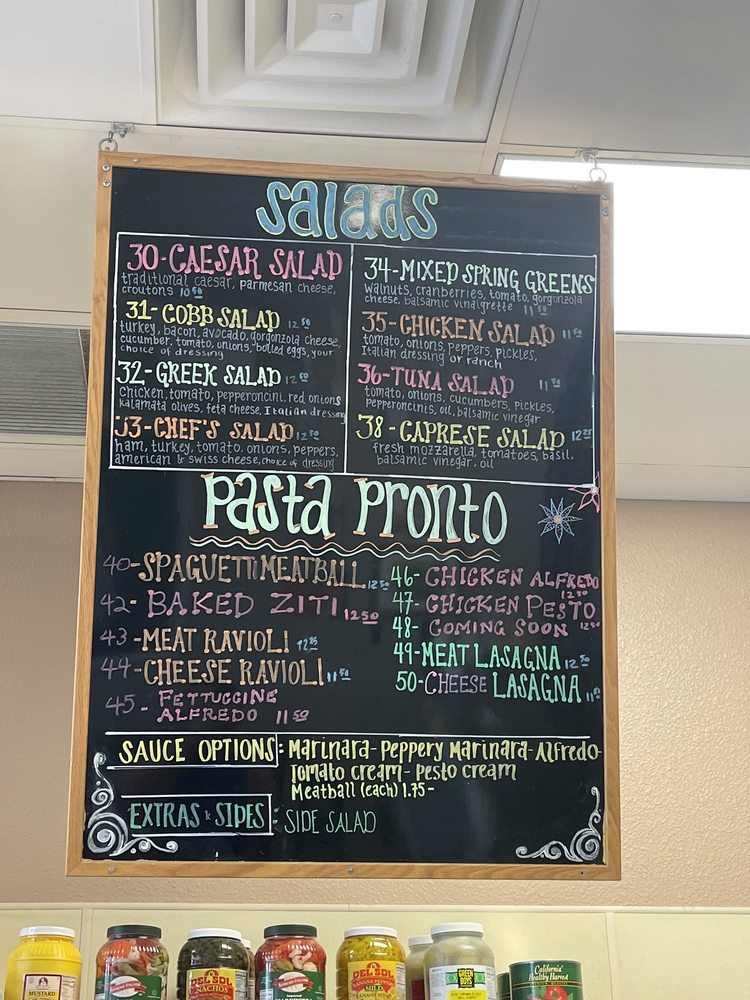 Salads
30-CAESAR SALAD
traditional caesar, parmesan cheese,
croutons 10 50
31- COBB SALAD 12 50
turkey, bacon, avocado, gorgonzola cheese,
cucumber, tomato, onions, boiled eggs, your
choice of dressing
32- GREEK SALAD 12 50
Chicken, tomato, pepperoncini, red onions
kalamata olives, feta cheese, Italian dressing
33-CHEF'S SALAD 12 50
ham, turkey, tomato, onions, peppers,
american & swiss cheese, choice of dressing
34-MIXED SPRING GREENS
walnuts, cranberries, tomato, gorgonzola
cheese, balsamic vinaigrette 11 50
35-CHICKEN SALAD 11 50
tomato, onions, peppers, pickles,
Italian dressing or ranch
36-TUNA SALAD 11 50
tomato, onions, cucumbers, pickles,
pepperoncinis, oil, balsamic vinegar
38 - CAPRESE SALAD 12 25
fresh mozzarella, tomatoes, basil,
balsamic vinegar, oil
Pasta Pronto
40-SPAGUETTI MEATBALL 12 50
42- BAKED ZITI 12 50
43-MEAT RAVIOLI 12 25
44-CHEESE RAVIOLI 11 50
45- FETTUCCINE
ALFREDO 11 50
46- CHICKEN ALFREDO
12 50
47- CHICKEN PESTO
48- COMING SOON 12 50
49-MEAT LASAGNA 12 50
50-CHEESE LASAGNA
SAUCE OPTIONS: Marinara-Peppery Marinara-Alfredo-
Tomato cream - pesto cream
Meatball (each) 1.75-
EXTRAS & SIDES : SIDE SALAD
MUSTARD
DEL SOL
NACHOS
DEL SOL
MILD
GREEN BOYS
California's
Healthy Harvest